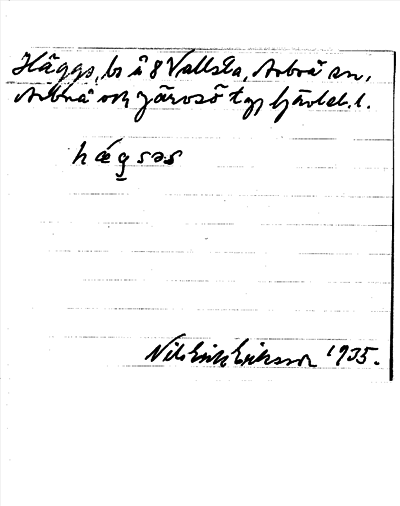 Häggs, bs å 8 Vallsta, Arbrå sn,
Arbrå och Järvsö tg, Gävleb. l.
hǽgsəs
Nils Erik Eriksson 1935.